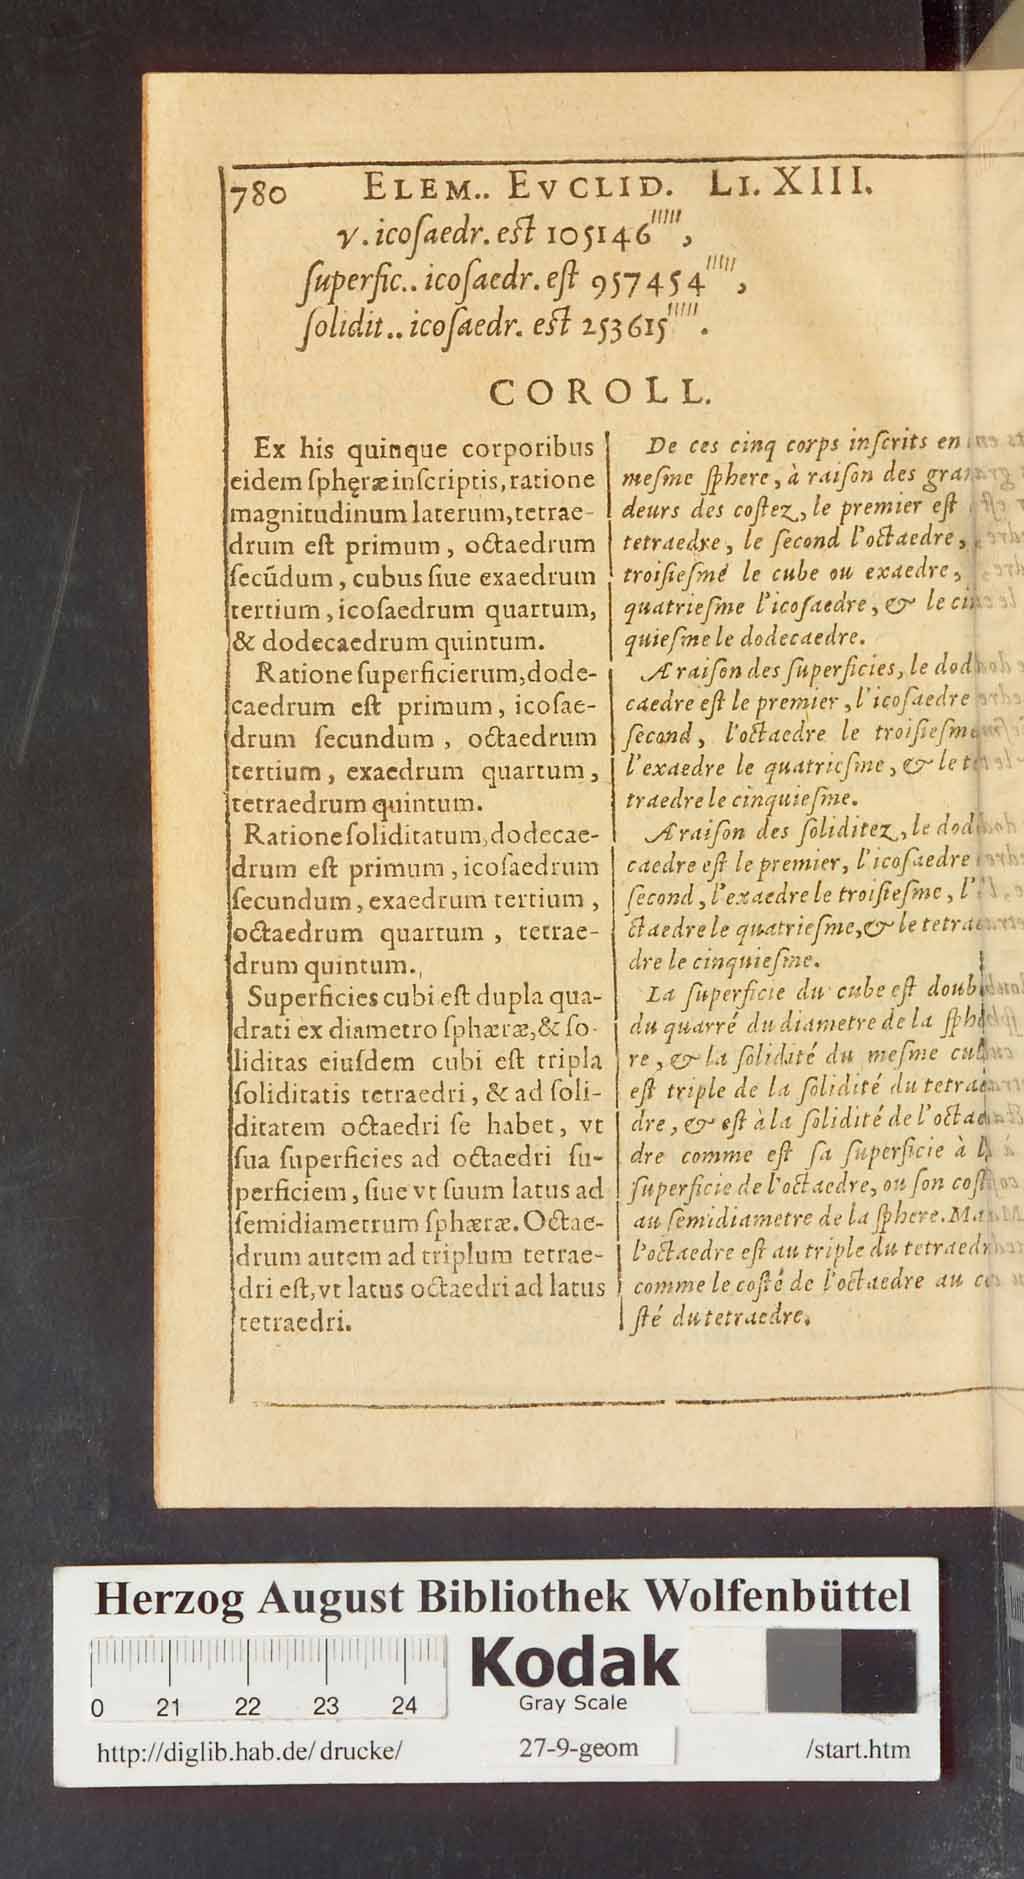 780 ELEM.. EVCLID. LI. XIII.
γ. icoſaedr. eſt 105146''''',
ſuperfic.. icoſaedr. eſt 957454''''',
ſolidit.. icoſaedr. eſt 253615'''''.
COROLL.
Ex his quinque corporibus
eidem ſphęræ inſcriptis, ratione
magnitudinum laterum, tetrae-
drum eſt primum, octaedrum
ſecũdum, cubus ſiue exaedrum
tertium, icoſaedrum quartum,
& dodecaedrum quintum.
Ratione ſuperficierum, dode-
caedrum eſt primum, icoſae-
drum ſecundum, octaedrum
tertium, exaedrum quartum,
tetraedrum quintum.
Ratione ſoliditatum, dodecae-
drum eſt primum, icoſaedrum
ſecundum, exaedrum tertium,
octaedrum quartum, tetrae-
drum quintum.
Superficies cubi eſt dupla qua-
drati ex diametro ſphæræ, & ſo-
liditas eiuſdem cubi eſt tripla
ſoliditatis tetraedri, & ad ſoli-
ditatem octaedri ſe habet, vt
ſua ſuperficies ad octaedri ſu-
perficiem, ſiue vt ſuum latus ad
ſemidiametrum ſphæræ. Octae-
drum autem ad triplum tetrae-
dri eſt, vt latus octaedri ad latus
tetraedri.
De ces cinq corps inſcrits en
meſme ſphere, à raiſon des gran
deurs des coſtez, le premier eſt
tetraedre, le ſecond l'octaedre,
troiſieſme le cube ou exaedre,
quatrieſme l'icoſaedre, & le cin
quieſme le dodecaedre.
A raiſon des ſuperficies, le dod
caedre eſt le premier, l'icoſaedre
ſecond, l'octaedre le troiſieſme
l'exaedre le quatrieſme, & le t
traedre le cinquieſme.
A raiſon des ſoliditez, le dod
caedre eſt le premier, l'icoſaedre
ſecond, l'exaedre le troiſieſme, l'
ctaedre le quatrieſme, & le tetra
dre le cinquieſme.
La ſuperficie du cube eſt doub
du quarré du diametre de la ſphe
re, & la ſolidité du meſme cu
eſt triple de la ſolidité du tetrae
dre, & eſt à la ſolidité de l'octae
dre comme eſt ſa ſuperficie à l
ſuperficie de l'octaedre, ou ſon coſ
au ſemidiametre de la ſphere. Ma
l'octaedre eſt au triple du tetraedr
comme le coſté de l'octaedre au co
ſté du tetraedre.
Herzog August Bibliothek Wolfenbüttel
0 21 22 23 24
Kodak
Gray Scale
http://diglib.hab.de/drucke/ 27-9-geom /start.htm